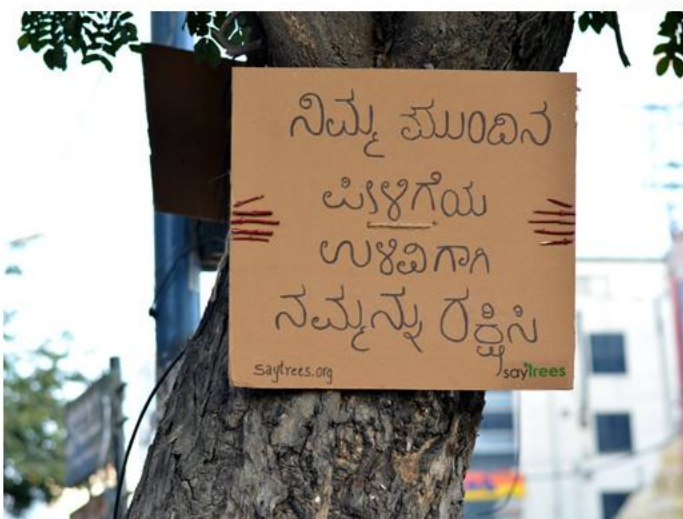 ನಿಮ್ಮ ಮುಂದಿನ
ಪೀಳಿಗೆಯ
ಉಳಿವಿಗಾಗಿ
ನಮ್ಮನ್ನು ರಕ್ಷಿಸಿ
saytrees.org
saytrees